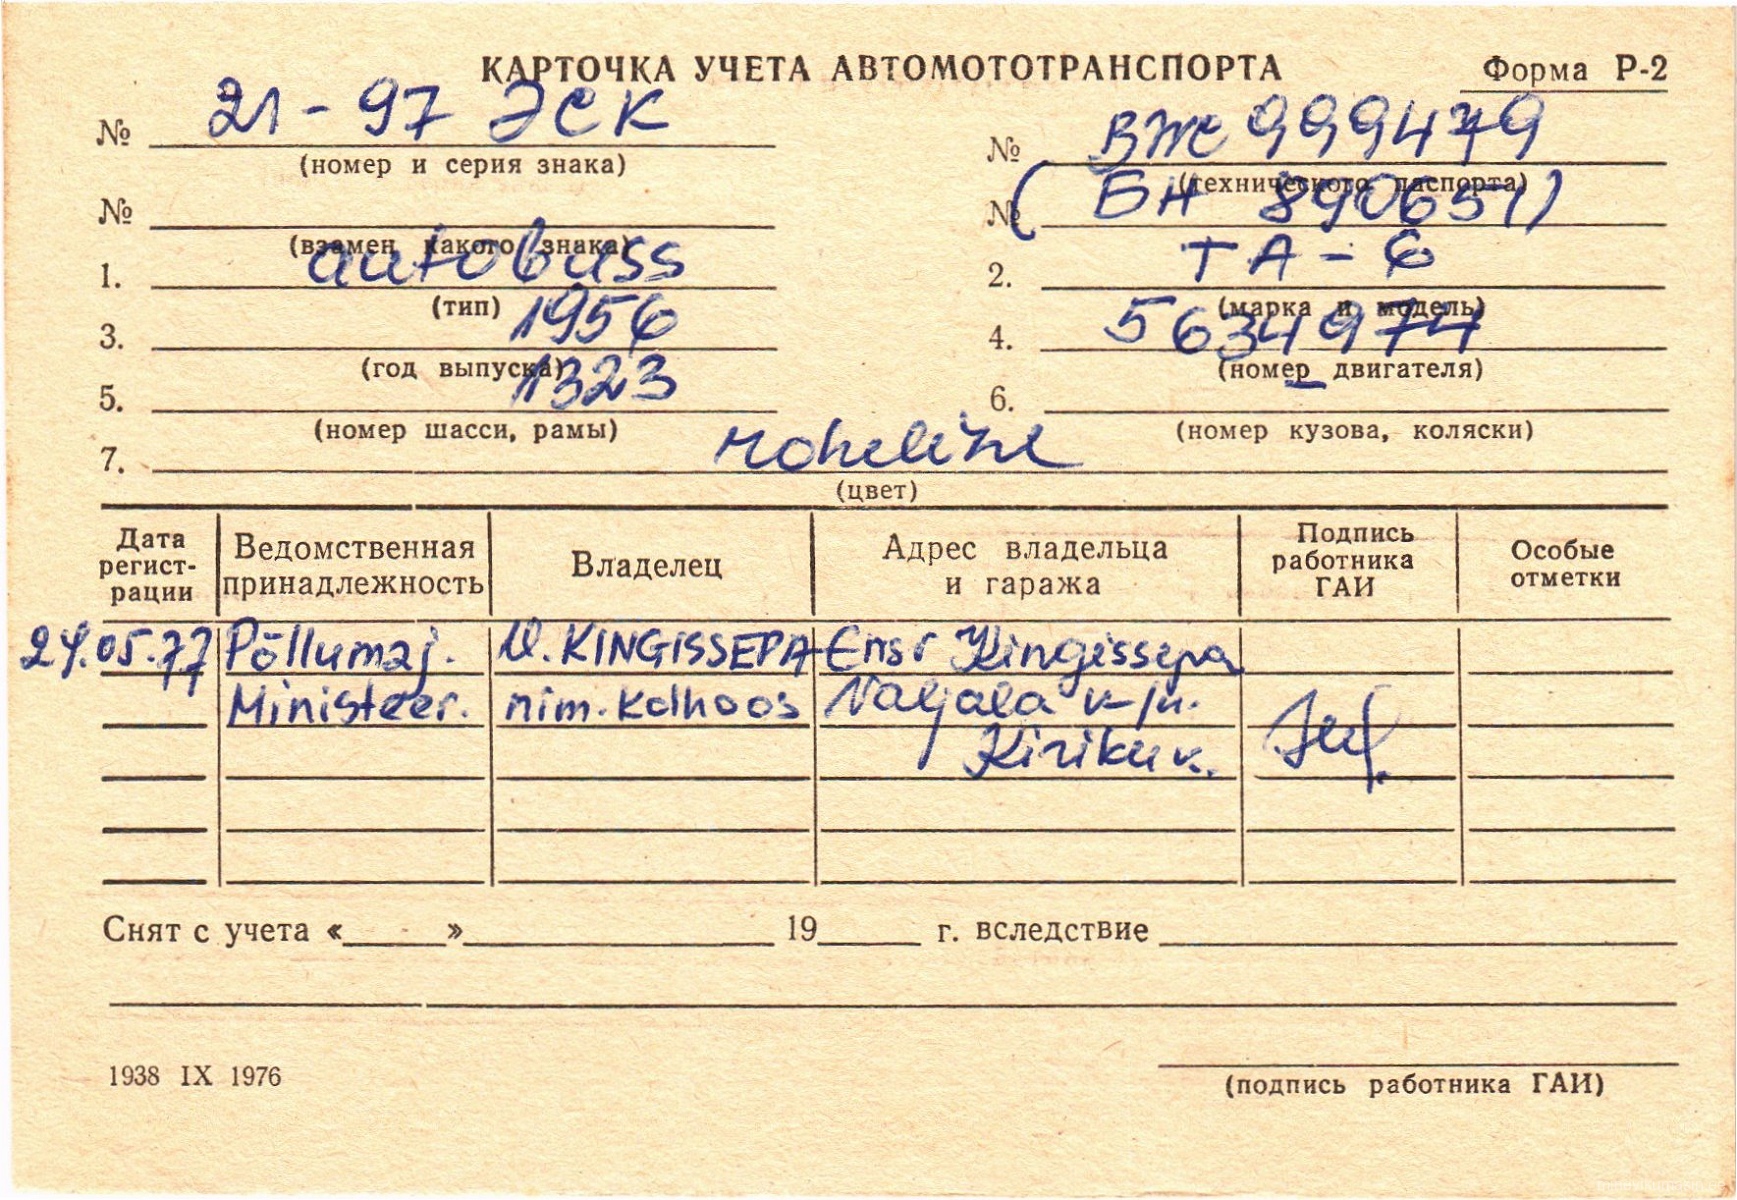 КАРТОЧКА УЧЕТА АВТОМОТОТРАНСПОРТА Форма Р-2
№ 21-97 ЭСК № ВЖ 999479
(номер и серия знака) (технического паспорта)
№ № (БН 890651)
(взамен какого знака)
1. autobuss 2. ТА-6
(тип) (марка и модель)
3. 1956 4. 5634974
(год выпуска) (номер двигателя)
5. 1323 6. –
(номер шасси, рамы) (номер кузова, коляски)
7. roheline
(цвет)
Дата регист-рации Ведомственная принадлежность Владелец Адрес владельца и гаража Подпись работника ГАИ Особые отметки
24.05.77 Põllumaj. V. KINGISSEPA Ensv Kingissepa
Ministeer. nim. kolhoos Valjala k/n.
Kiriku k.
Снят с учета « » 19 г. вследствие
1938 IX 1976
(подпись работника ГАИ)